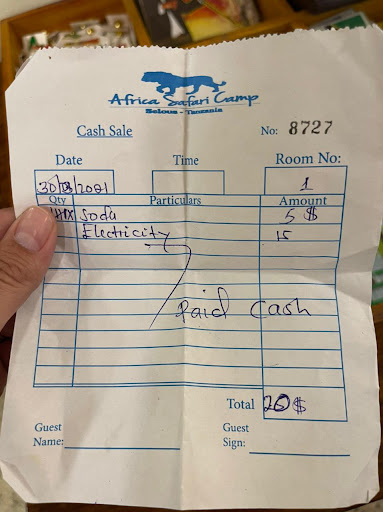 Africa Safari Camp
Selous - Tanzania
Cash Sale No: 8727
Date Time Room No:
30/03/2021 1
Qty Particulars Amount
Soda 5 $
Electricity 15
Paid Cash
Total 20$
Guest Name:
Guest Sign: